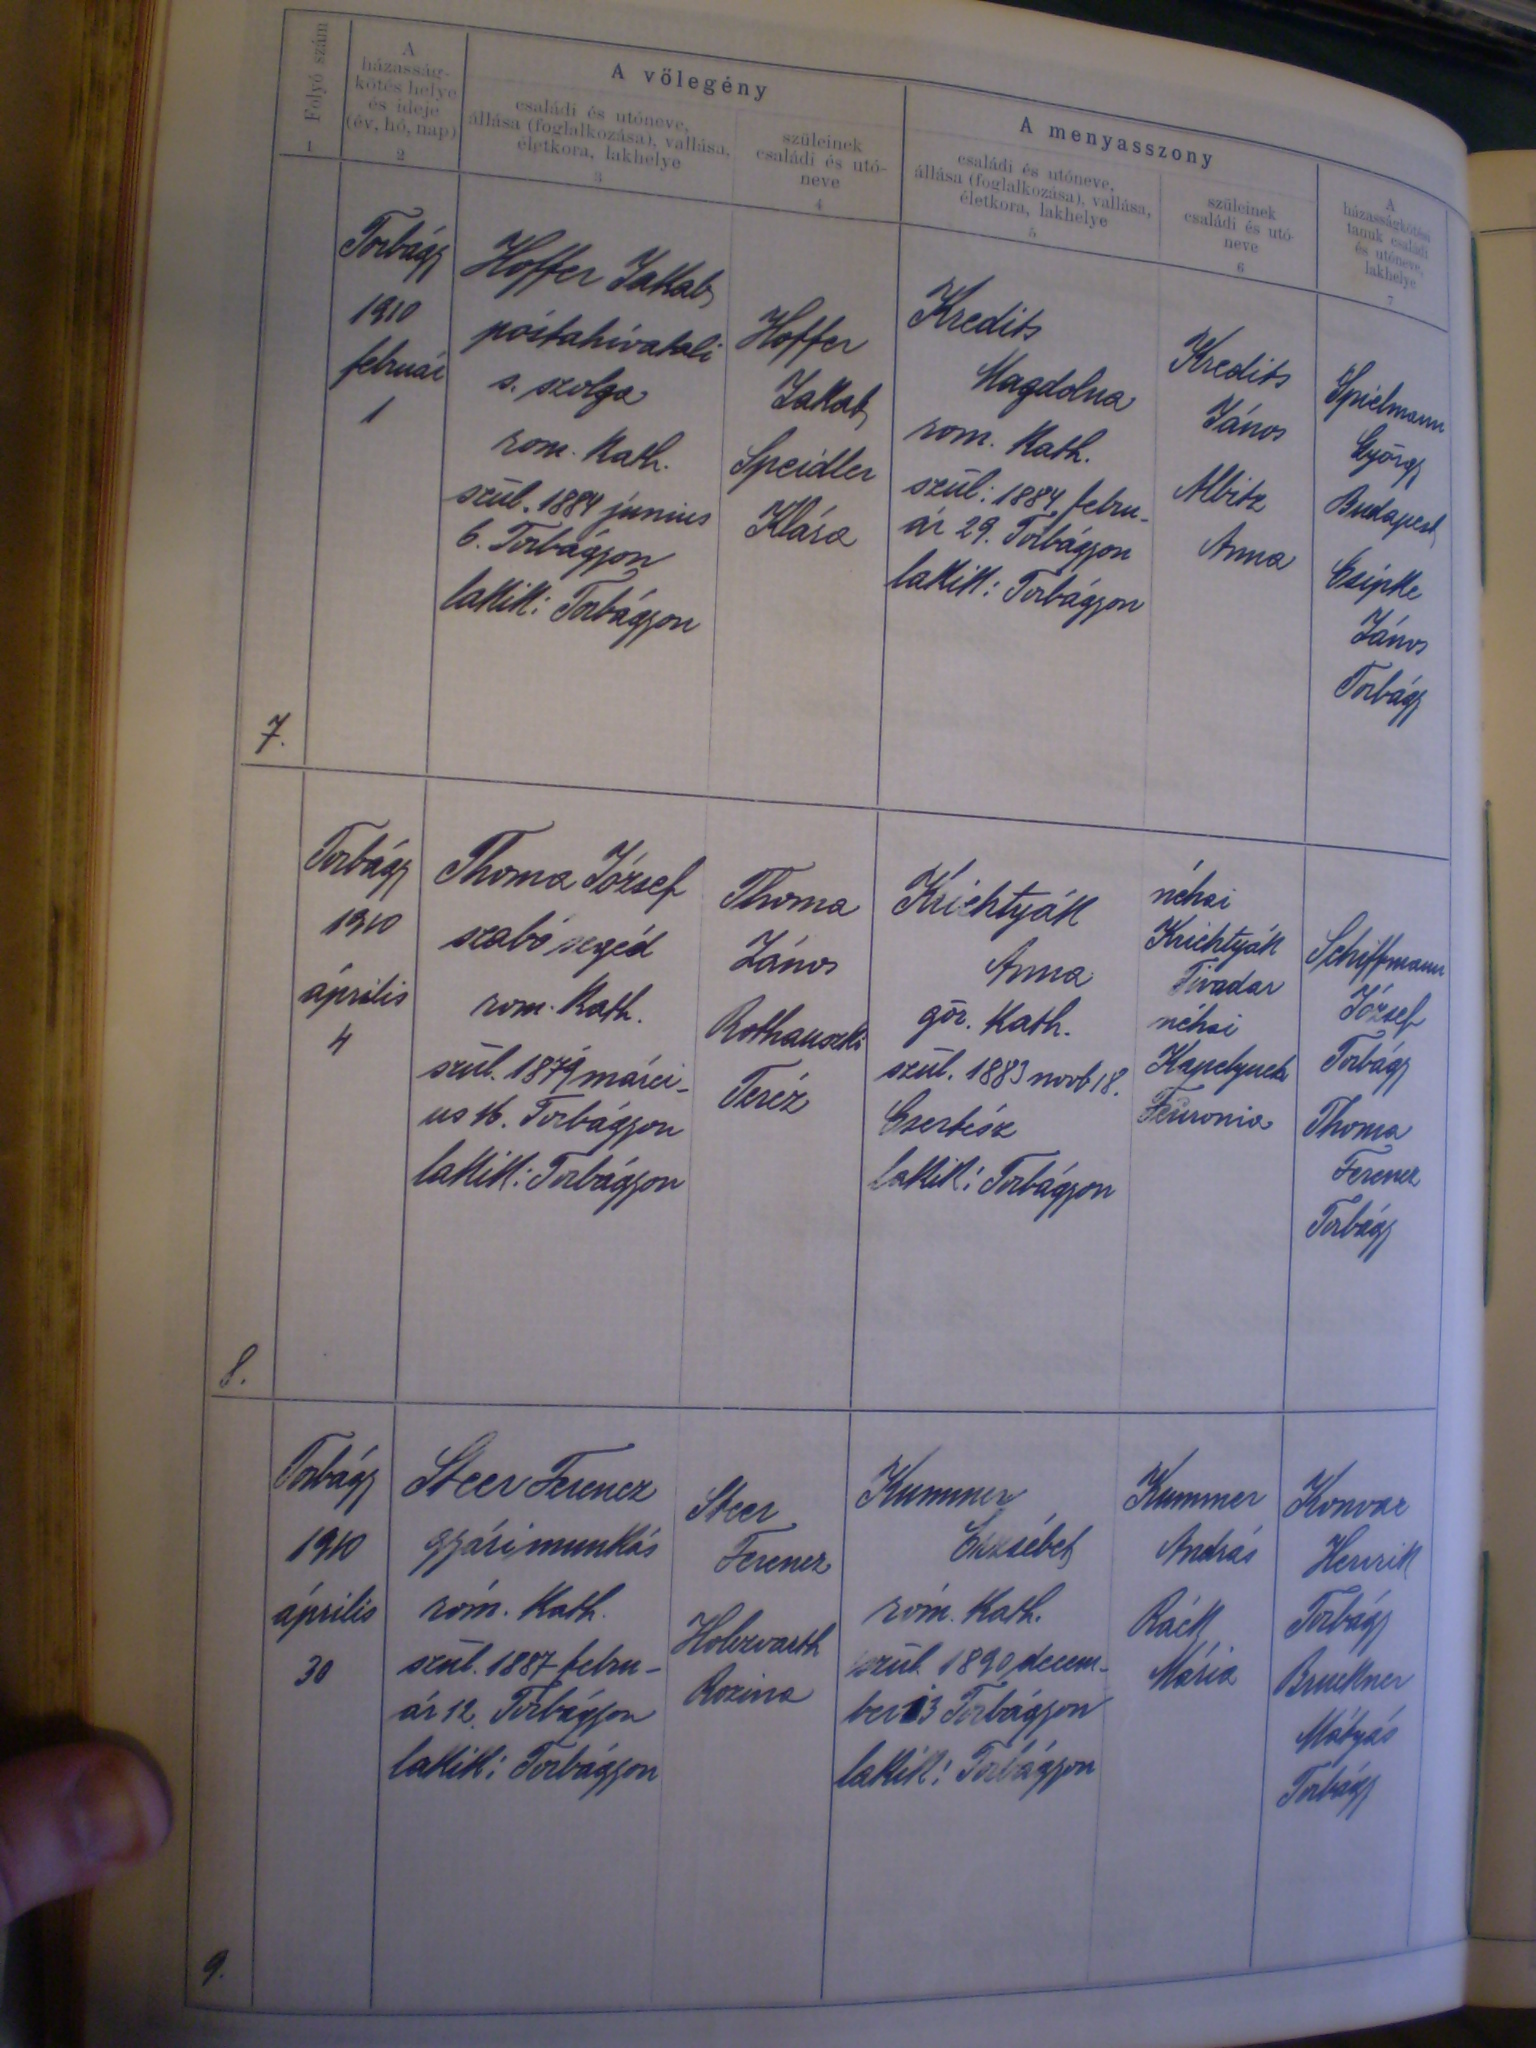 Folyó szám
1
A
házasság-
kötés helye
és ideje
(év, hó, nap)
2
A vőlegény
családi és utóneve,
állása (foglalkozása), vallása,
életkora, lakhelye
3
szüleinek
családi és utó-
neve
4
A menyasszony
családi és utóneve,
állása (foglalkozása), vallása,
életkora, lakhelye
5
szüleinek
családi és utó-
neve
6
A
házasságkötési
tanuk családi
és utóneve,
lakhelye
7
7.
Torbágy
1910
február
1
Hoffer Jakab
póstahivatali
s. szolga
rom. kath.
szül. 1884 június
6. Torbágyon
lakik: Torbágyon
Hoffer
Jakab
Speidler
Klára
Kredits
Magdolna
rom. kath.
szül: 1884 febru-
ár 29. Torbágyon
lakik: Torbágyon
Kredits
János
Albitz
Anna
Spielmann
György
Budapest
Csipke
János
Torbágy
8.
Torbágy
1910
április
4
Thoma József
szabó segéd
rom. kath.
szül. 1879 márci-
us 16. Torbágyon
lakik: Torbágyon
Thoma
János
Rothauszki
Teréz
Krichtyák
Anna
gör. kath.
szül. 1883 novb 18.
Csertész
lakik: Torbágyon
néhai
Krichtyák
Tivadar
néhai
Schiffmann
József
Torbágy
Thoma
Ferencz
Torbágy
9.
Torbágy
1910
április
30
Steer Ferencz
gyári munkás
róm. kath.
szül. 1887 febru-
ár 12. Torbágyon
lakik: Torbágyon
Steer
Ferencz
Holczwarth
Rozina
Kummer
Erzsébet
róm. kath.
szül. 1890 decem-
ber 13 Torbágyon
lakik: Torbágyon
Kummer
András
Ráck
Mária
Konvar
Henrik
Torbágy
Bruckner
Mátyás
Torbágy